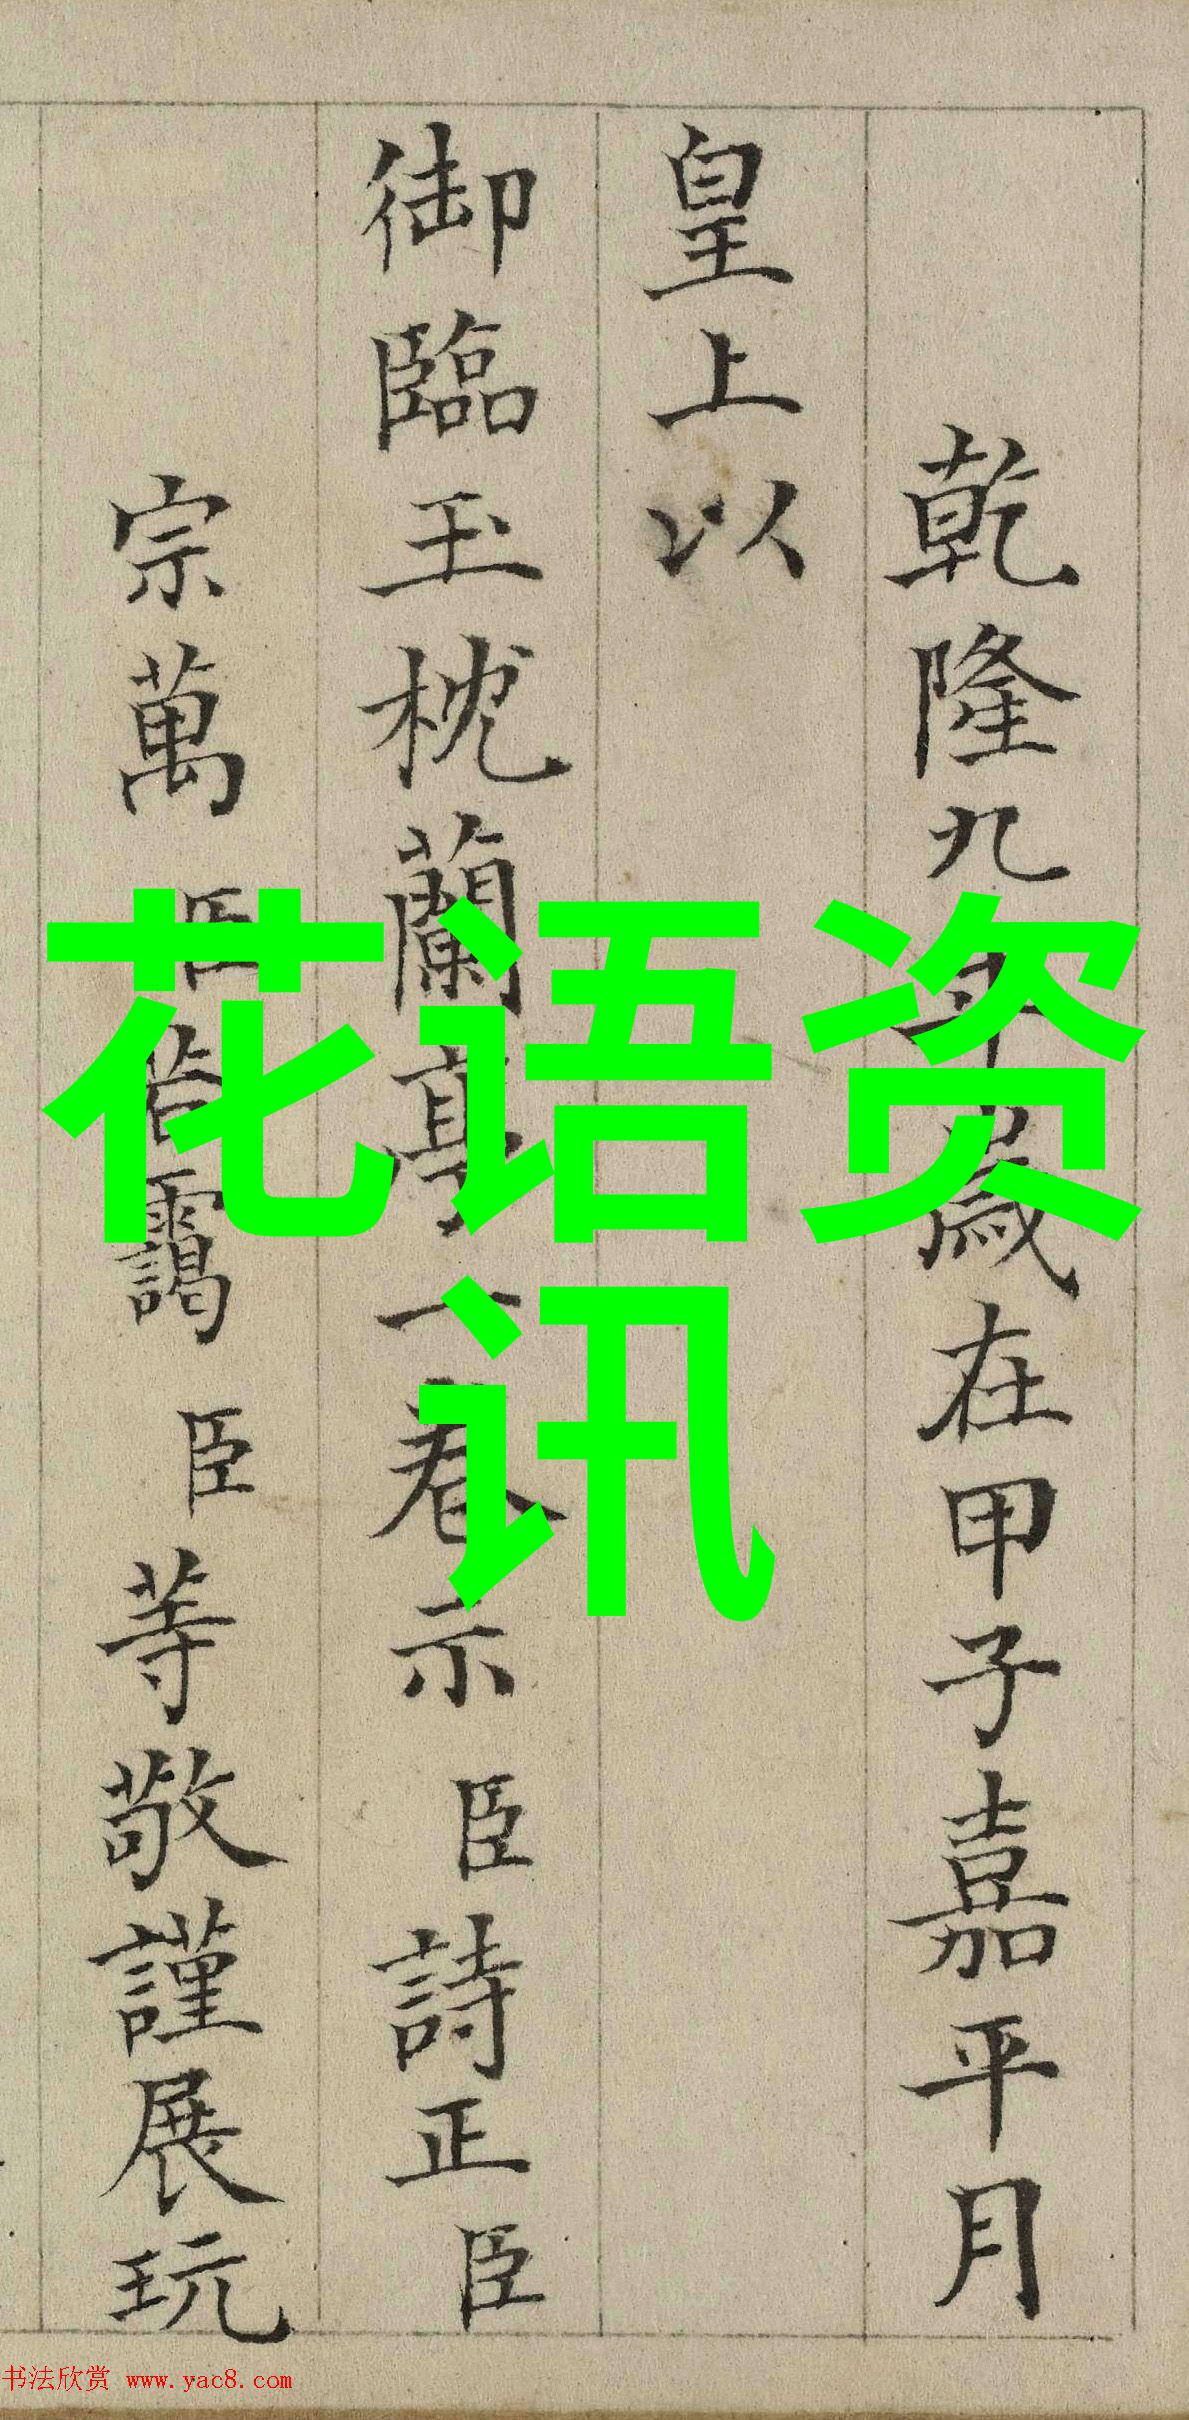 乾隆九年歲在甲子嘉平月
皇上以
御臨玉枕蘭亭一卷示臣詩正臣
宗萬臣若靄臣等敬謹展玩
花语资
讯
书法欣赏 www.yac8.com